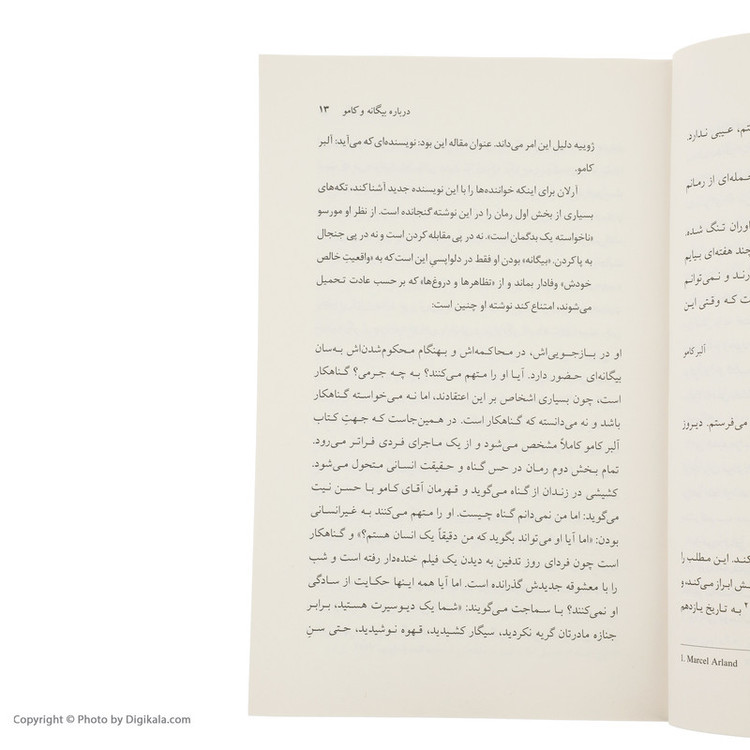 درباره بیگانه و کامو ۱۳
ژوییه دلیل این امر می‌داند. عنوان مقاله این بود: نویسنده‌ای که می‌آید: آلبر
کامو.
آرلان برای اینکه خواننده‌ها را با این نویسنده جدید آشنا کند، تکه‌های
بسیاری از بخش اول رمان را در این نوشته گنجانده است. از نظر او مورسو
«ناخواسته یک بدگمان است». نه در پی مقابله کردن است و نه در پی جنجال
به پا کردن. «بیگانه» بودن او فقط در دلواپسیِ این است که به «واقعیتِ خالص
خودش» وفادار بماند و از «تظاهرها و دروغ‌ها» که بر حسب عادت تحمیل
می‌شوند، امتناع کند نوشته او چنین است:
او در بازجویی‌اش، در محاکمه‌اش و بهنگام محکوم‌شدن‌اش به‌سان
بیگانه‌ای حضور دارد. آیا او را متهم می‌کنند؟ به چه جرمی؟ گناهکار
است، چون بسیاری اشخاص بر این اعتقادند، اما نه می‌خواسته گناهکار
باشد و نه می‌دانسته که گناهکار است. در همین‌جاست که جهتِ کتاب
آلبر کامو کاملاً مشخص می‌شود و از یک ماجرای فردی فراتر می‌رود.
تمام بخش دوم رمان در حس گناه و حقیقت انسانی متحول می‌شود.
کشیشی در زندان از گناه می‌گوید و قهرمان آقای کامو با حسن نیت
می‌گوید: اما من نمی‌دانم گناه چیست. او را متهم می‌کنند به غیرانسانی
بودن: «اما آیا او می‌تواند بگوید که من دقیقاً یک انسان هستم؟» و گناهکار
است چون فردای روز تدفین به دیدن یک فیلم خنده‌دار رفته است و شب
را با معشوقه جدیدش گذرانده است. اما آیا همه اینها حکایت از سادگی
او نمی‌کند؟ با سماجت می‌گویند: «شما یک دیوسیرت هستید، برابر
جنازه مادرتان گریه نکردید، سیگار کشیدید، قهوه نوشیدید، حتی سنِ
تم، عیبی ندارد.
جمله‌ای از رمانم
اوران تنگ شده.
چند هفته‌ای بیایم
رند و نمی‌توانم
ت که وقتی این
آلبر کامو
می‌فرستم. دیروز
کند. این مطلب را
ش ابراز می‌کند، و
۲ به تاریخ یازدهم
1. Marcel Arland
Copyright © Photo by Digikala.com